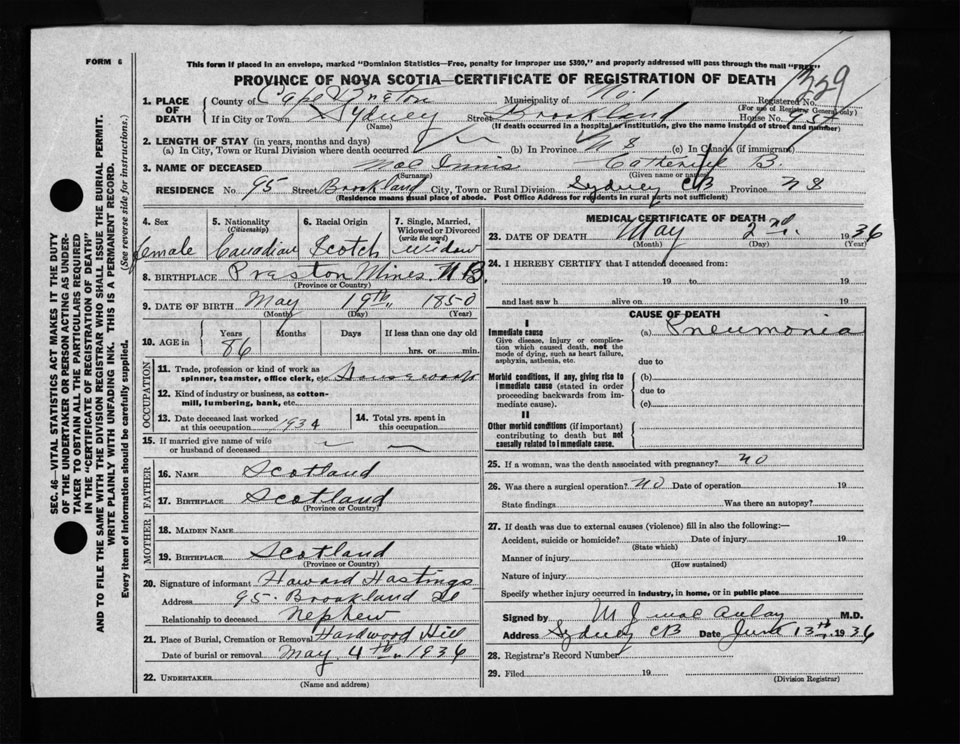 FORM 6
This form if placed in an envelope, marked "Dominion Statistics—Free, penalty for improper use $300," and properly addressed will pass through the mail "FREE"
PROVINCE OF NOVA SCOTIA—CERTIFICATE OF REGISTRATION OF DEATH
329
SEC. 46—VITAL STATISTICS ACT MAKES IT THE DUTY
OF THE UNDERTAKER OR PERSON ACTING AS UNDER-
TAKER TO OBTAIN ALL THE PARTICULARS REQUIRED
IN THE "CERTIFICATE OF REGISTRATION OF DEATH"
AND TO FILE THE SAME WITH THE DIVISION REGISTRAR WHO SHALL ISSUE THE BURIAL PERMIT.
WRITE PLAINLY WITH UNFADING INK. THIS IS A PERMANENT RECORD.
Every item of information should be carefully supplied. (See reverse side for instructions.)
1. PLACE OF DEATH
County of Cape Breton Municipality of No. 1 Registered No.
(For use of Registrar General only)
If in City or Town Sydney Street Brookland House No. 95
(Name) (If death occurred in a hospital or institution, give the name instead of street and number)
2. LENGTH OF STAY (in years, months and days)
(a) In City, Town or Rural Division where death occurred (b) In Province N S (c) In Canada (if immigrant)
3. NAME OF DECEASED Mac Innis Catherine B.
(Surname) (Given name or names)
RESIDENCE No 95 Street Brookland City, Town or Rural Division Sydney CB Province N S
(Residence means usual place of abode. Post Office Address for residents in rural parts not sufficient)
4. Sex female
5. Nationality (Citizenship) Canadian
6. Racial Origin Scotch
7. Single, Married, Widowed or Divorced (write the word) Widow
8. BIRTHPLACE Preston Mines. N B.
(Province or Country)
9. DATE OF BIRTH May 19th 1850
(Month) (Day) (Year)
10. AGE in Years 86 Months Days If less than one day old
hrs. or min.
OCCUPATION
11. Trade, profession or kind of work as
spinner, teamster, office clerk, etc. Housework
12. Kind of industry or business, as cotton-
mill, lumbering, bank, etc.
13. Date deceased last worked
at this occupation 1934
14. Total yrs. spent in
this occupation
15. If married give name of wife
or husband of deceased
FATHER
16. NAME Scotland
17. BIRTHPLACE Scotland
(Province or Country)
MOTHER
18. MAIDEN NAME
19. BIRTHPLACE Scotland
(Province or Country)
20. Signature of informant Howard Hastings
Address 95. Brookland St
Relationship to deceased Nephew
21. Place of Burial, Cremation or Removal Hardwood Hill
Date of burial or removal May 4th 1936
22. UNDERTAKER
(Name and address)
MEDICAL CERTIFICATE OF DEATH
23. DATE OF DEATH May 2nd. 1936
(Month) (Day) (Year)
24. I HEREBY CERTIFY that I attended deceased from:
19 to 19
and last saw h alive on 19
CAUSE OF DEATH
I
Immediate cause (a) Pneumonia
Give disease, injury or complica-
tion which caused death, not the
mode of dying, such as heart failure,
asphyxia, asthenia, etc.
due to
Morbid conditions, if any, giving rise to
immediate cause (stated in order
proceeding backwards from im-
mediate cause).
(b)
due to
(c)
II
Other morbid conditions (if important)
contributing to death but not
causally related to immediate cause.
25. If a woman, was the death associated with pregnancy? NO
26. Was there a surgical operation? NO Date of operation 19
State findings Was there an autopsy?
27. If death was due to external causes (violence) fill in also the following:—
Accident, suicide or homicide? Date of injury 19
(State which)
Manner of injury
(How sustained)
Nature of injury
Specify whether injury occurred in industry, in home, or in public place
Signed by M J Mac Aulay M.D.
Address Sydney CB Date June 13th. 1936
28. Registrar's Record Number
29. Filed 19
(Division Registrar)